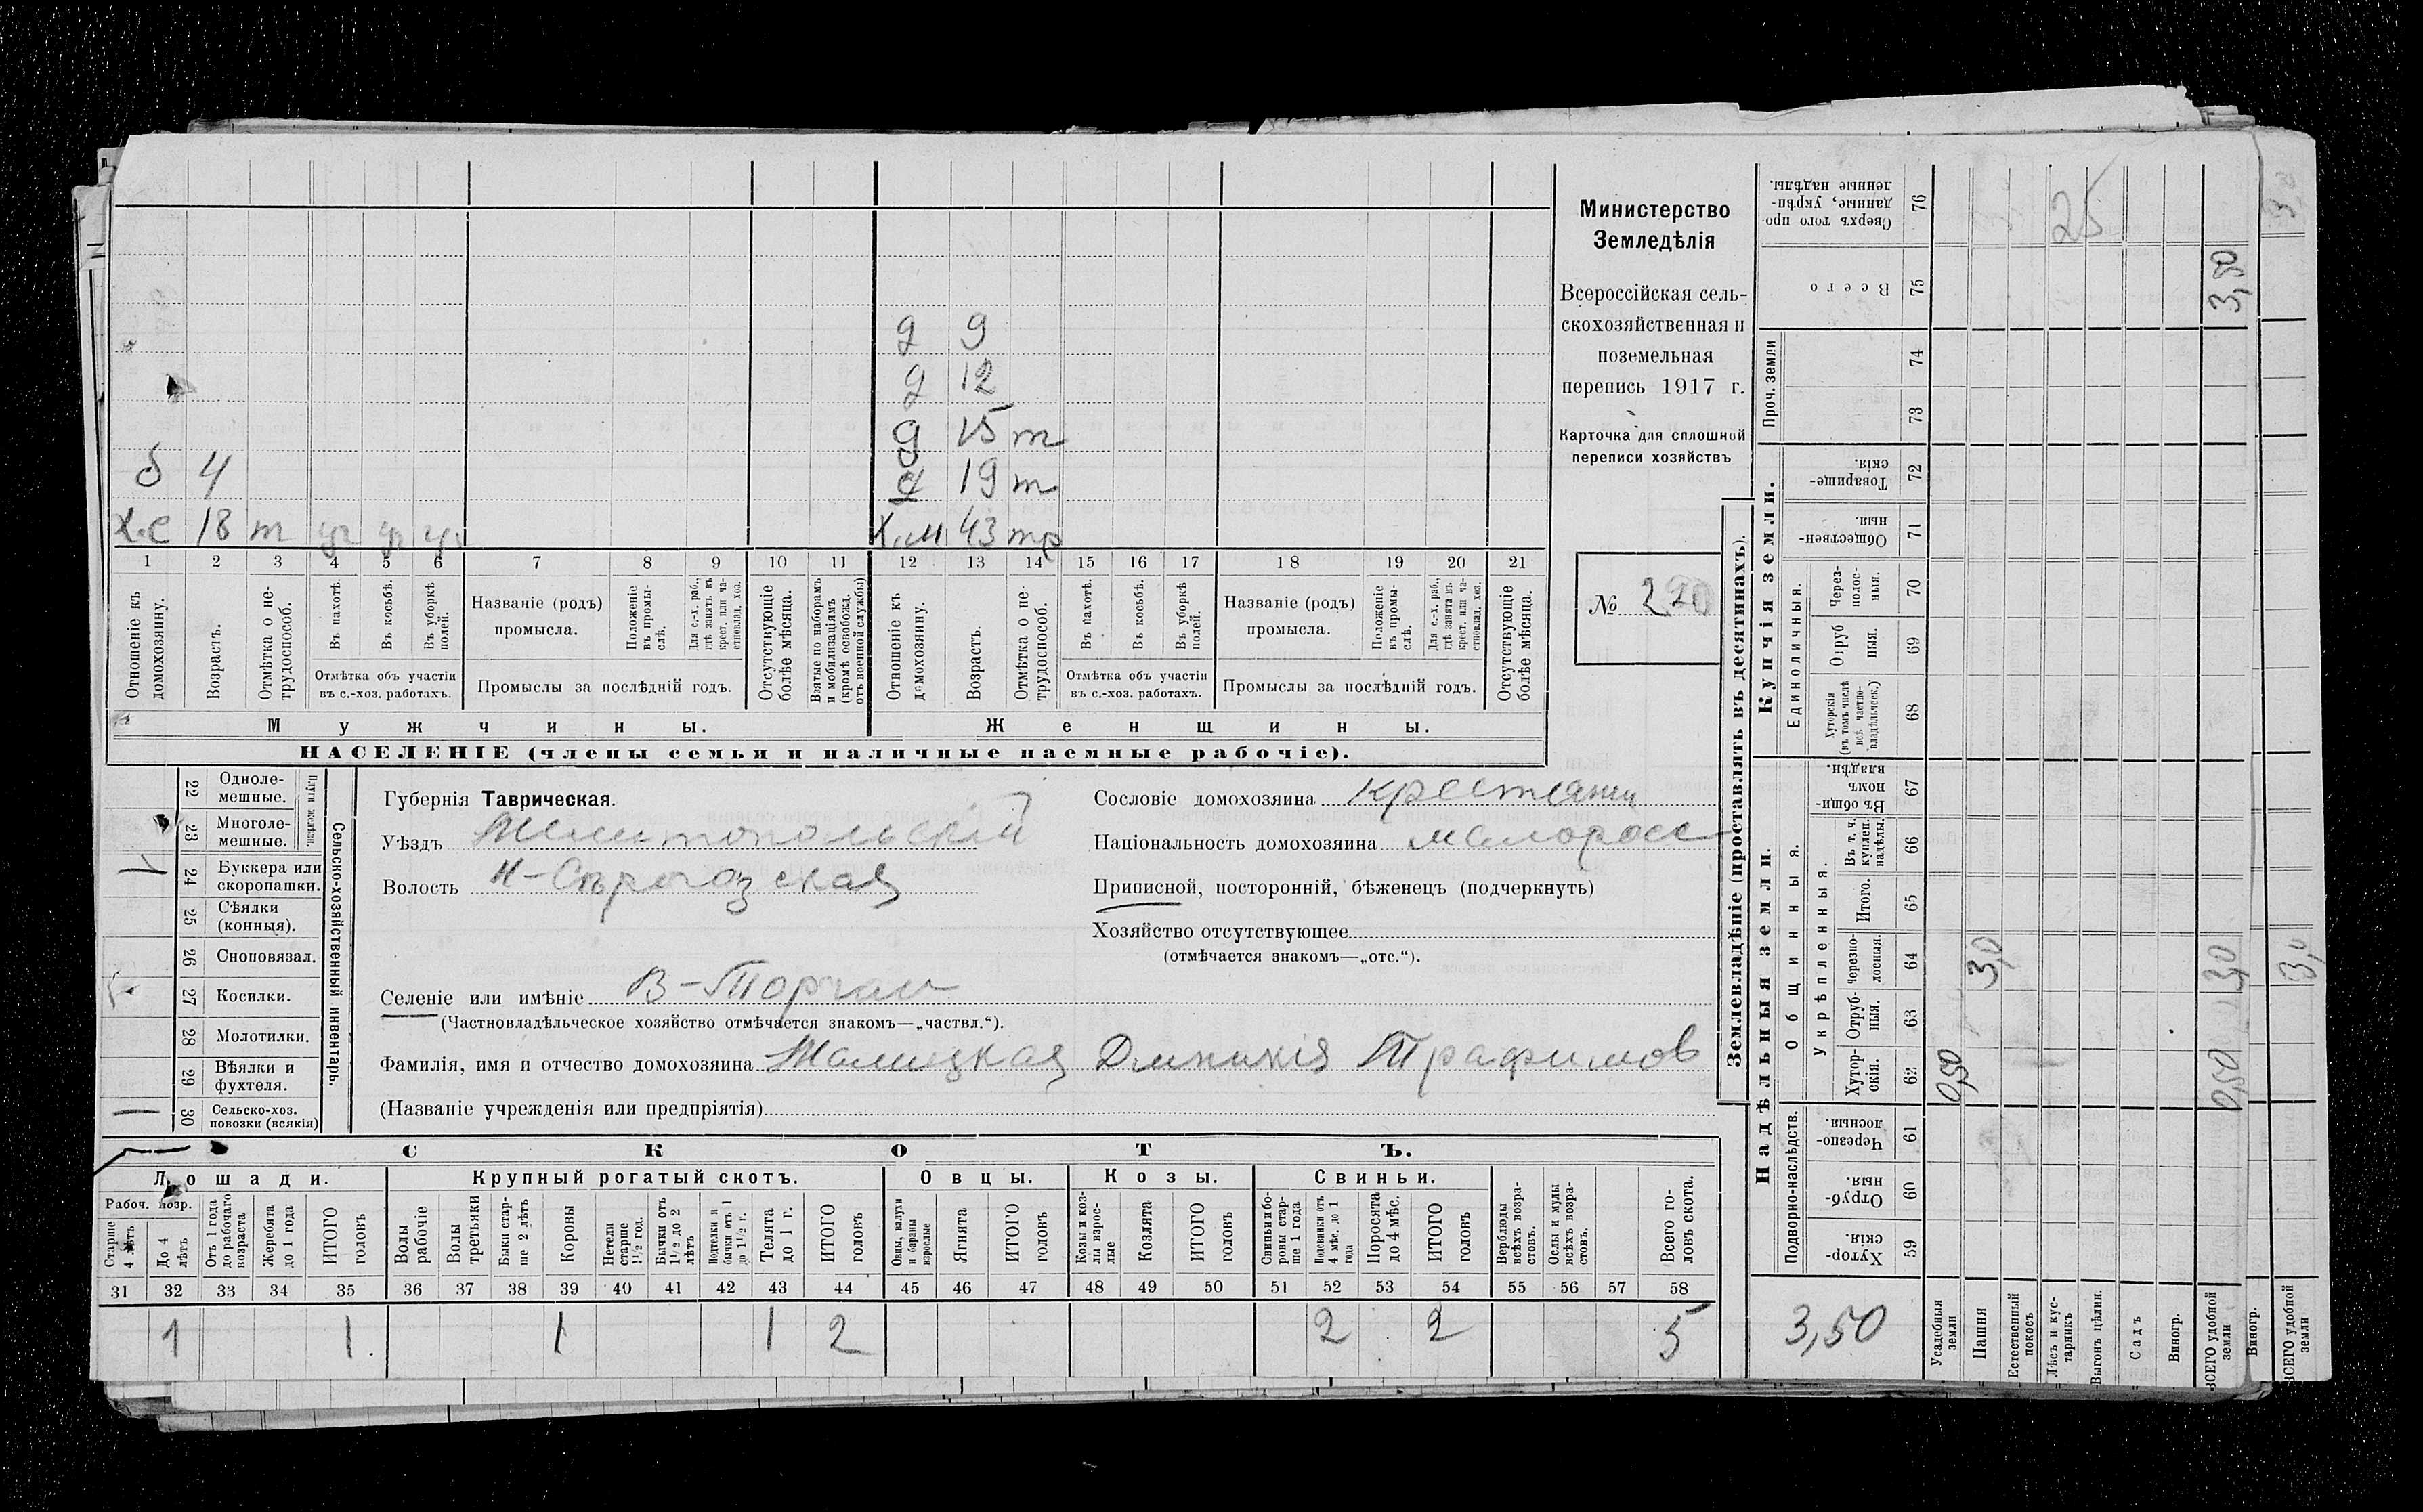 д 9
д 12
д 15 т
б 4
д 19 т
х.с 18 т уч уч уч
х.м 43 тр
1 2 3 4 5 6 7 8 9 10 11 12 13 14 15 16 17 18 19 20 21
Отношеніе къ домохозяину.
Возрастъ.
Отмѣтка о не-трудоспособ.
Въ пахотѣ.
Въ косьбѣ.
Въ уборкѣ полей.
Отмѣтка объ участіи
въ с.-хоз. работахъ.
Названіе (родъ)
промысла.
Положеніе въ промы-слѣ.
Для с.-х. раб., гдѣ занятъ въ крест. или ча-стновлад. хоз.
Промыслы за послѣдній годъ.
Отсутствующіе болѣе мѣсяца.
Взятые по наборамъ и мобилизаціямъ (кромѣ освобожд. отъ военной службы)
Отношеніе къ домохозяину.
Возрастъ.
Отмѣтка о не-трудоспособ.
Въ пахотѣ.
Въ косьбѣ.
Въ уборкѣ полей.
Отмѣтка объ участіи
въ с.-хоз. работахъ.
Названіе (родъ)
промысла.
Положеніе въ промы-слѣ.
Для с.-х. раб., гдѣ занята въ крест. или ча-стновлад. хоз.
Промыслы за послѣдній годъ.
Отсутствующіе болѣе мѣсяца.
Мужчины.
Женщины.
НАСЕЛЕНІЕ (члены семьи и наличные наемные рабочіе).
Министерство
Земледѣлія
Всероссійская сель-
скохозяйственная и
поземельная
перепись 1917 г.
Карточка для сплошной
переписи хозяйствъ
№ 220
22 Одноле-мешные.
23 Многоле-мешные.
Плуги желѣзн.
24 Буккера или скоропашки.
25 Сѣялки (конныя).
26 Сноповязал.
27 Косилки.
28 Молотилки.
29 Вѣялки и фухтеля.
30 Сельско-хоз. повозки (всякія)
Сельско-хозяйственный инвентарь.
Губернія Таврическая.
Уѣздъ Мелитопольскій
Волость Н-Сѣрогозская
Селеніе или имѣніе В-Торгаи
(Частновладѣльческое хозяйство отмѣчается знакомъ—„частвл.“).
Фамилія, имя и отчество домохозяина Трафимов
(Названіе учрежденія или предпріятія)
Сословіе домохозяина крестянин
Національность домохозяина малоросс
Приписной, посторонній, бѣженецъ (подчеркнуть)
Хозяйство отсутствующее
(отмѣчается знакомъ—„отс.“).
СКОТЪ.
Лошади.
Крупный рогатый скотъ.
Овцы.
Козы.
Свиньи.
Рабоч. возр.
Старше 4 лѣтъ
До 4 лѣтъ
Отъ 1 года до рабочаго возраста
Жеребята до 1 года
ИТОГО головъ
Волы рабочіе
Волы третьяки
Быки стар-ше 2 лѣтъ
Коровы
Нетели старше 1½ год.
Бычки отъ 1½ до 2 лѣтъ
Подтелки и бычки отъ 1 до 1½ г.
Телята до 1 г.
ИТОГО головъ
Овцы, валухи и бараны взрослые
Ягнята
ИТОГО головъ
Козы и коз-лы взрос-лые
Козлята
ИТОГО головъ
Свиньи и бо-ровы стар-ше 1 года
Подсвинки отъ 4 мѣс. до 1 года
Поросята до 4 мѣс.
ИТОГО головъ
Верблюды всѣхъ возра-стовъ.
Ослы и мулы всѣхъ возра-стовъ.
Всего го-ловъ скота.
31 32 33 34 35 36 37 38 39 40 41 42 43 44 45 46 47 48 49 50 51 52 53 54 55 56 57 58
1 1 1 1 2 2 2 5
Землевладѣніе (проставлять въ десятинахъ).
Купчія земли.
Надѣльныя земли.
Сверхъ того про-данные, укрѣп-ленные надѣлы. 76
25
Всего 75
3,50
Проч. земли 74 73
Товарище-скія. 72
Обществен-ныя. 71
Единоличныя.
Через-полос-ныя. 70
Отруб-ныя. 69
Хуторскія (въ томъ числѣ всѣ частно-владѣльческ.) 68
Въ общи-номъ владѣн. 67
Общинныя.
Укрѣпленныя.
Въ т. ч. куплен. надѣлы. 66
Итого. 65
Черезпо-лосныя. 64
3,0 3,0
Отруб-ныя. 63
Хутор-скія. 62
0,50 0,50
Подворно-наслѣдств.
Черезпо-лосныя. 61
Отруб-ныя. 60
Хутор-скія. 59
3,50
Усадебныя земли
Пашня
Естественный покосъ
Лѣсъ и кус-тарникъ
Выгонъ цѣлин.
Садъ
Виногр.
ВСЕГО удобной земли
Виногр.
ВСЕГО удобной земли
3,0